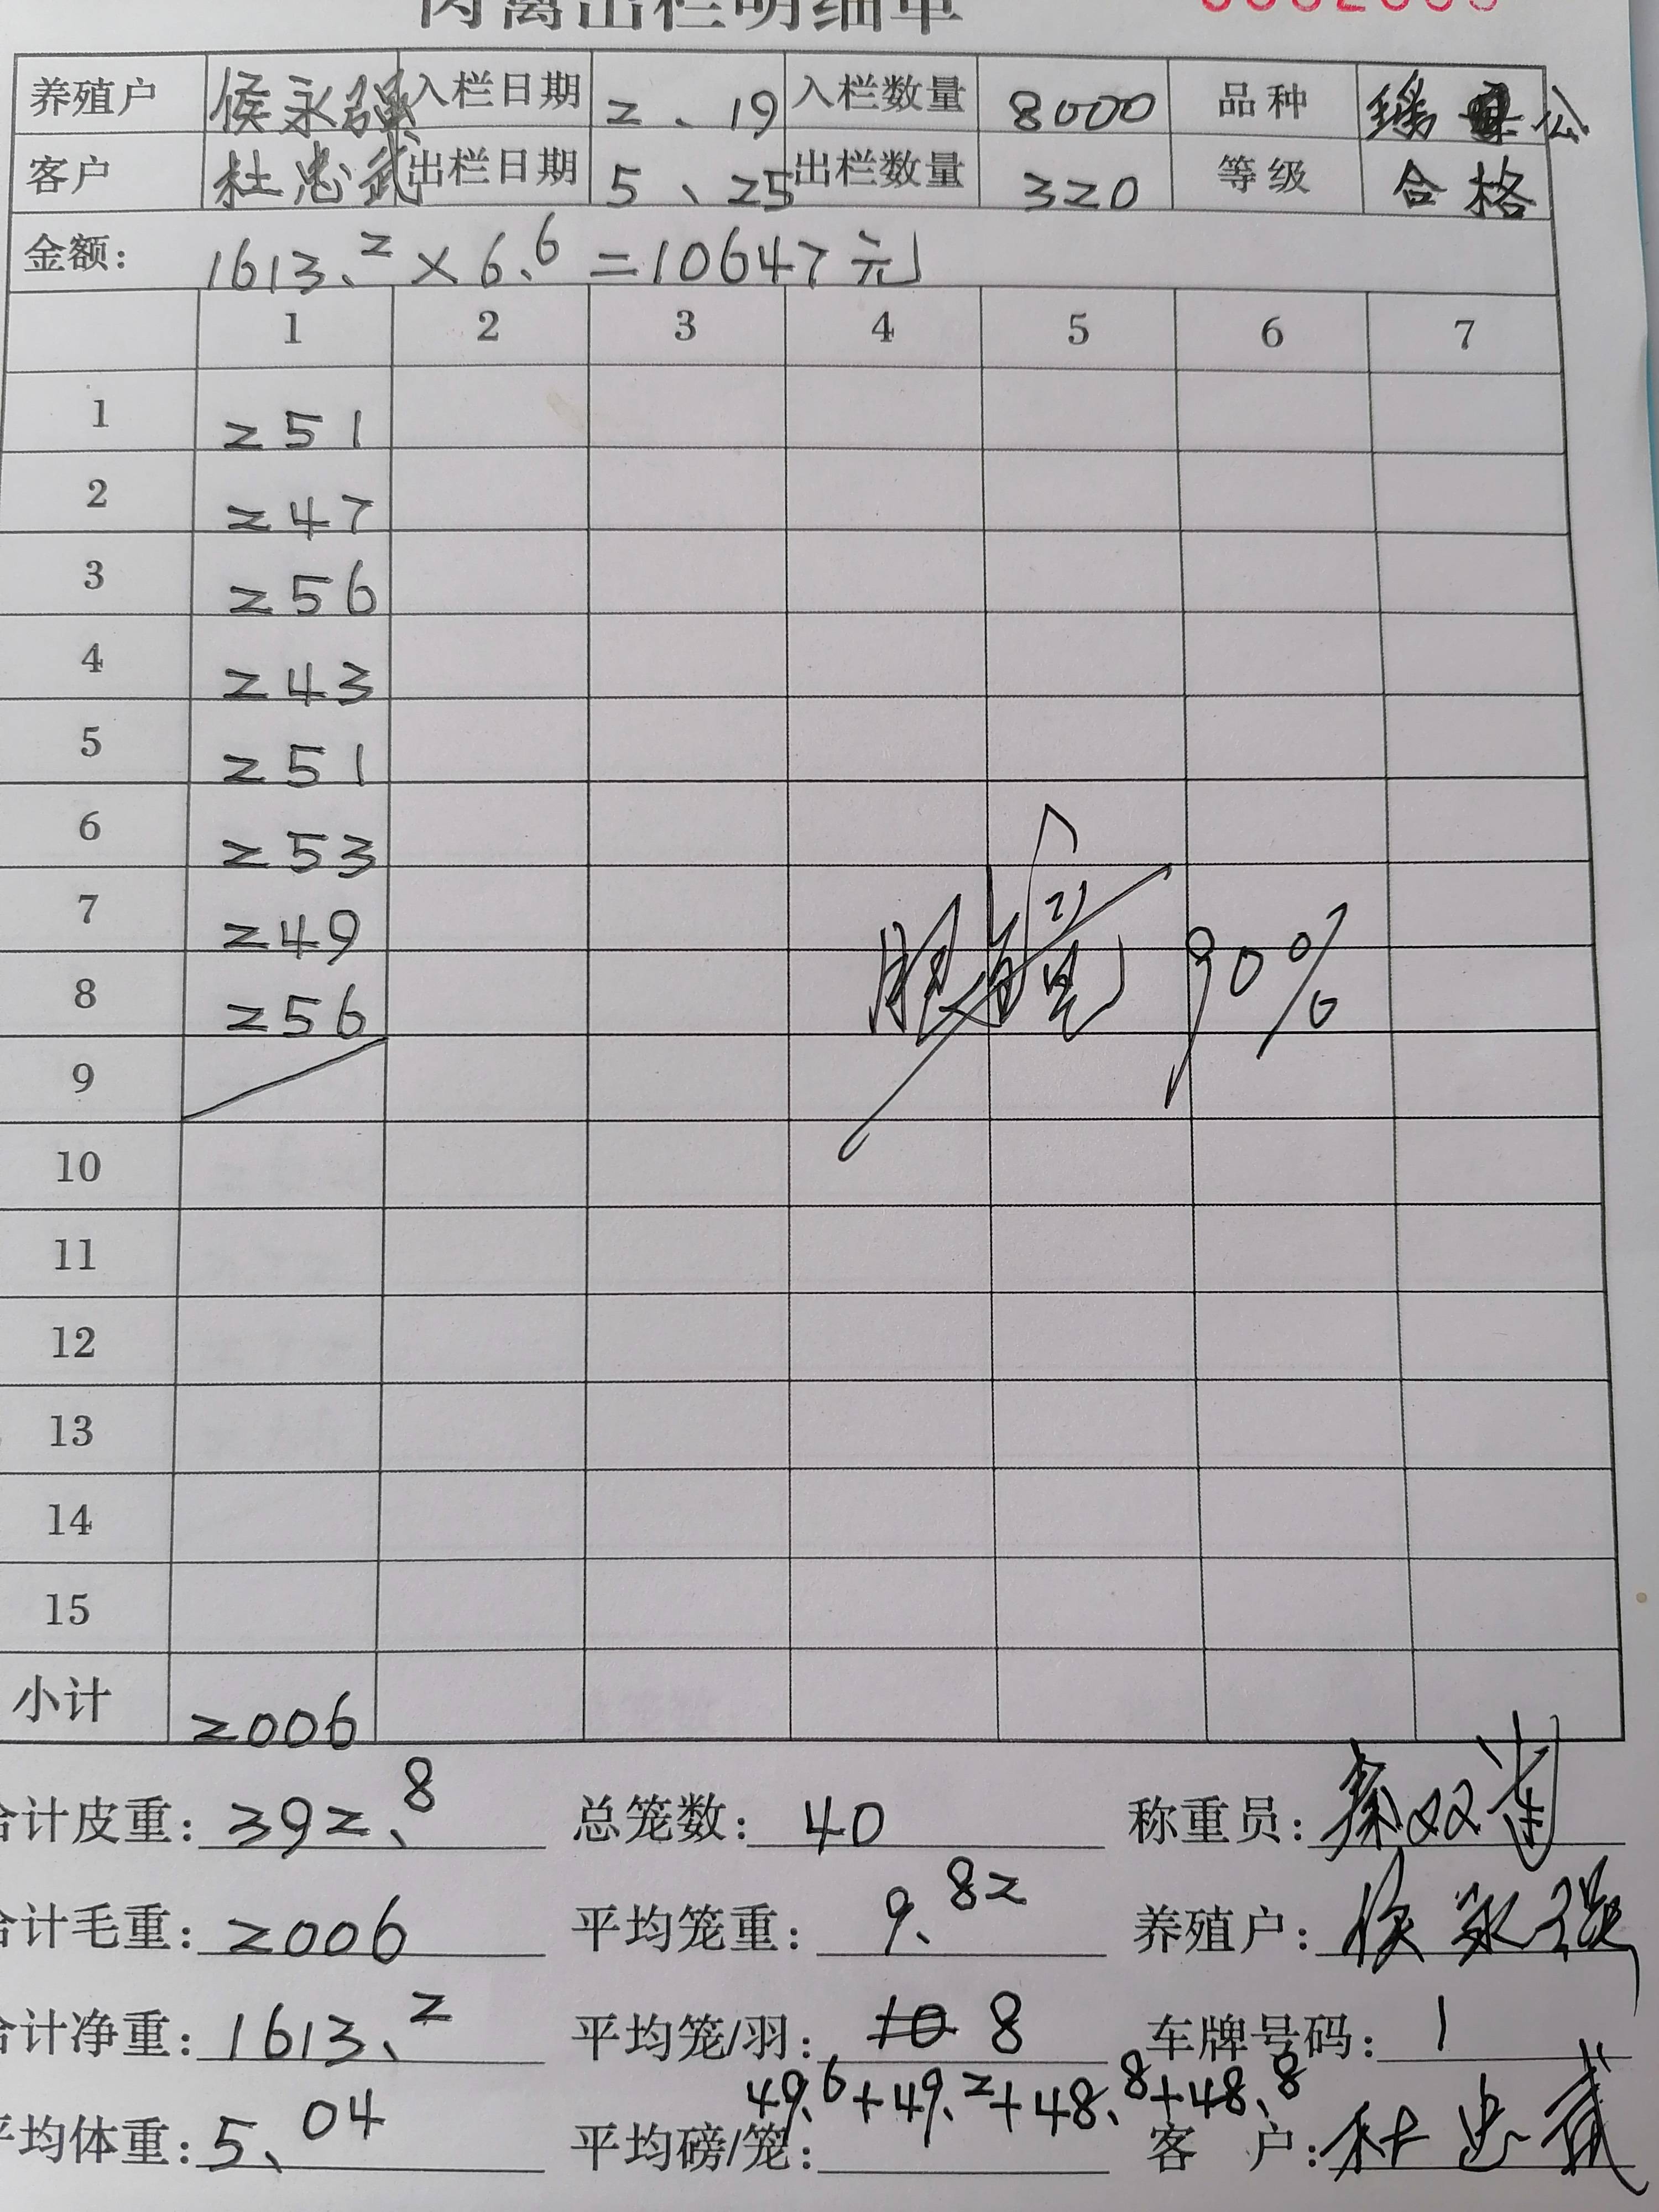 肉禽出栏明细单
养殖户 侯永强 入栏日期 2、19 入栏数量 8000 品种 瑶 公
客户 杜忠武 出栏日期 5、25 出栏数量 320 等级 合格
金额: 1613.2×6.6=10647元
1 2 3 4 5 6 7
1 251
2 247
3 256
4 243
5 251
6 253
7 249
8 256
90%
9
10
11
12
13
14
15
小计 2006
合计皮重: 392.8 总笼数: 40 称重员:
合计毛重: 2006 平均笼重: 9.82 养殖户: 侯永强
合计净重: 1613.2 平均笼/羽: 10 8 车牌号码: 1
49.6+49.2+48.8+48.8
平均体重: 5.04 平均磅/笼: 客户: 杜忠武